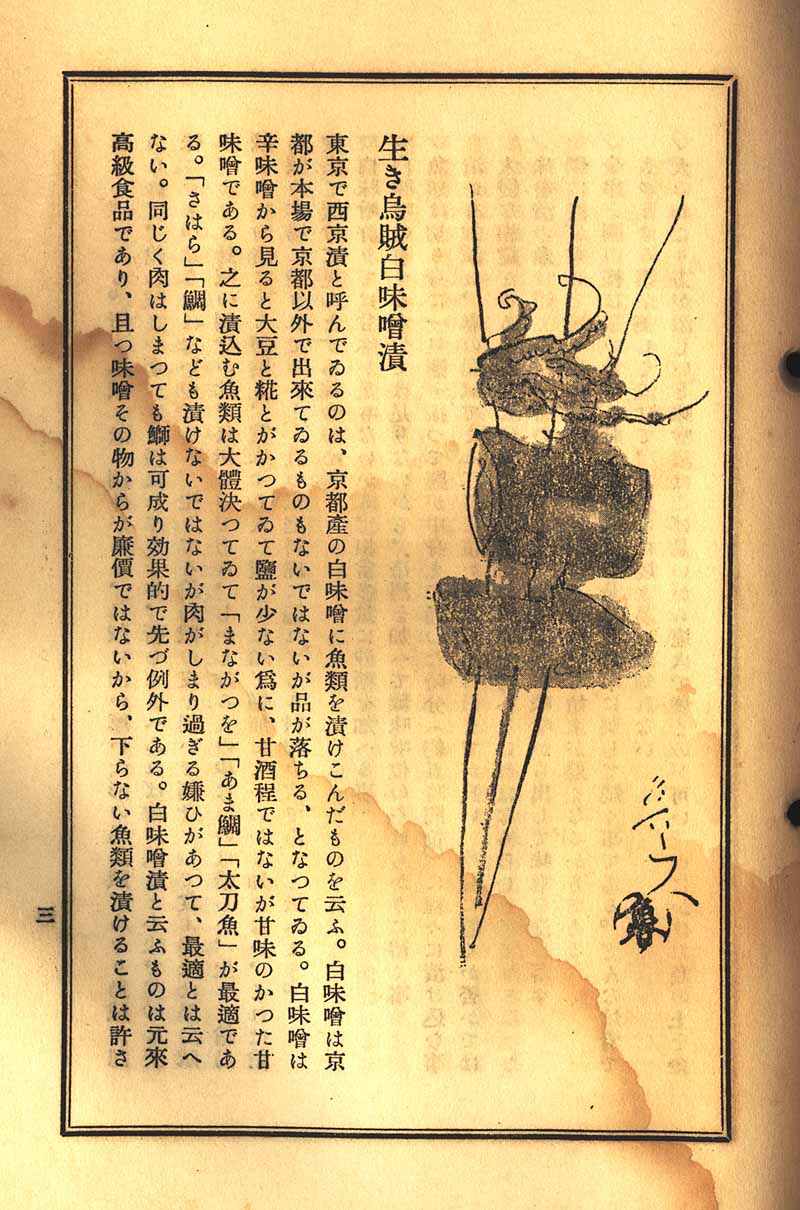 生き烏賊白味噌漬
東京で西京漬と呼んでゐるのは、京都産の白味噌に魚類を漬けこんだものを云ふ。白味噌は京
都が本場で京都以外で出來てゐるものもないではないが品が落ちる、となつてゐる。白味噌は
辛味噌から見ると大豆と糀とがかつてゐて鹽が少ない爲に、甘酒程ではないが甘味のかつた甘
味噌である。之に漬込む魚類は大體決つてゐて「まながつを」「あま鯛」「太刀魚」が最適であ
る。「さはら」「鯛」なども漬けないではないが肉がしまり過ぎる嫌ひがあつて、最適とは云へ
ない。同じく肉はしまつても鰤は可成り効果的で先づ例外である。白味噌漬と云ふものは元來
高級食品であり、且つ味噌その物からが廉價ではないから、下らない魚類を漬けることは許さ
三